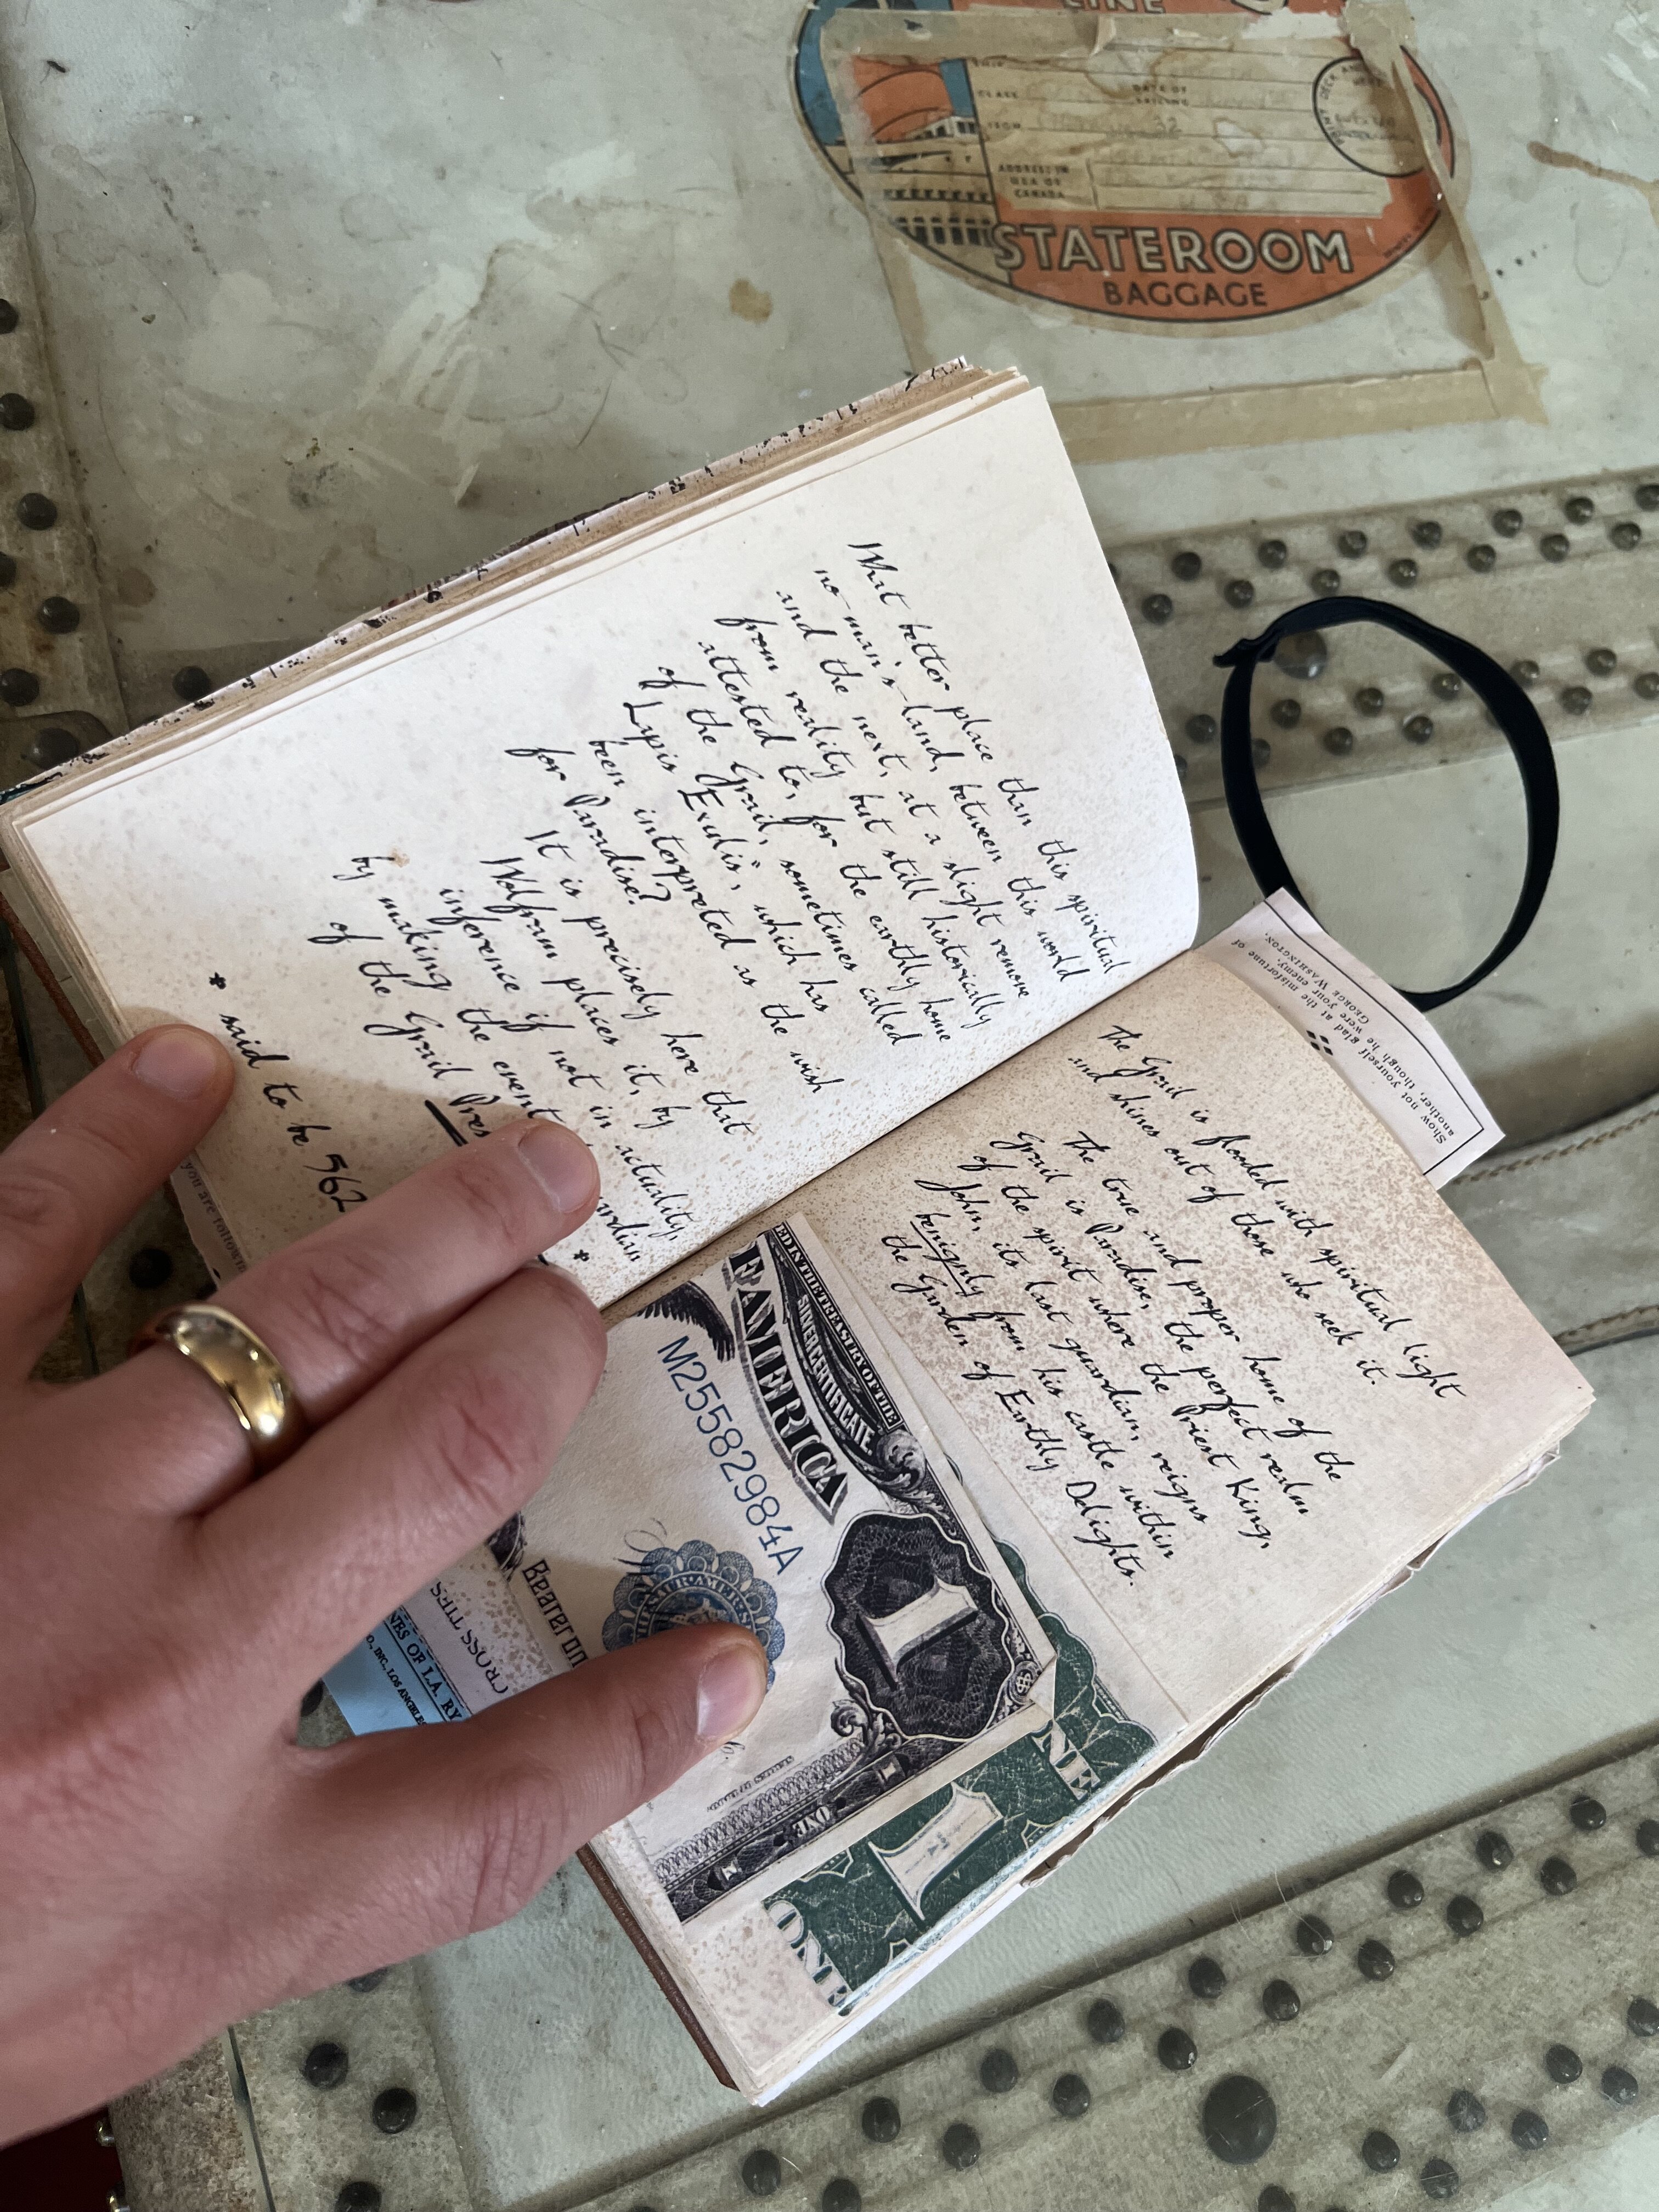 LINE
SHIP
CLASS
DATE OF
SAILING
FROM
ADDRESS IN
USA OR
CANADA
STATEROOM
BAGGAGE
What better place than this spiritual
no-man's-land, between this world
and the next, at a slight remove
from reality but still historically
attested to, for the earthly home
of the Grail, sometimes called
"Lapis Exulis", which has
been interpreted as the wish
for Paradise?
It is precisely here that
Wolfram places it, by
inference if not in actuality,
by making the event
of the Grail
* said to be 562
*
you are
The Grail is flooded with spiritual light
and shines out of those who seek it.
The true and proper home of the
Grail is Paradise, the perfect realm
of the spirit where the Priest King,
John, its last guardian, reigns
benignly from his castle within
the Garden of Earthly Delights.
Show not yourself glad at the misfortune of
another, though he were your enemy.
GEORGE WASHINGTON.
SILVER CERTIFICATE
AMERICA
M25582984A
1
ONE
1
ONE
ONE
OF L.A. RY
INC., LOS ANGELES